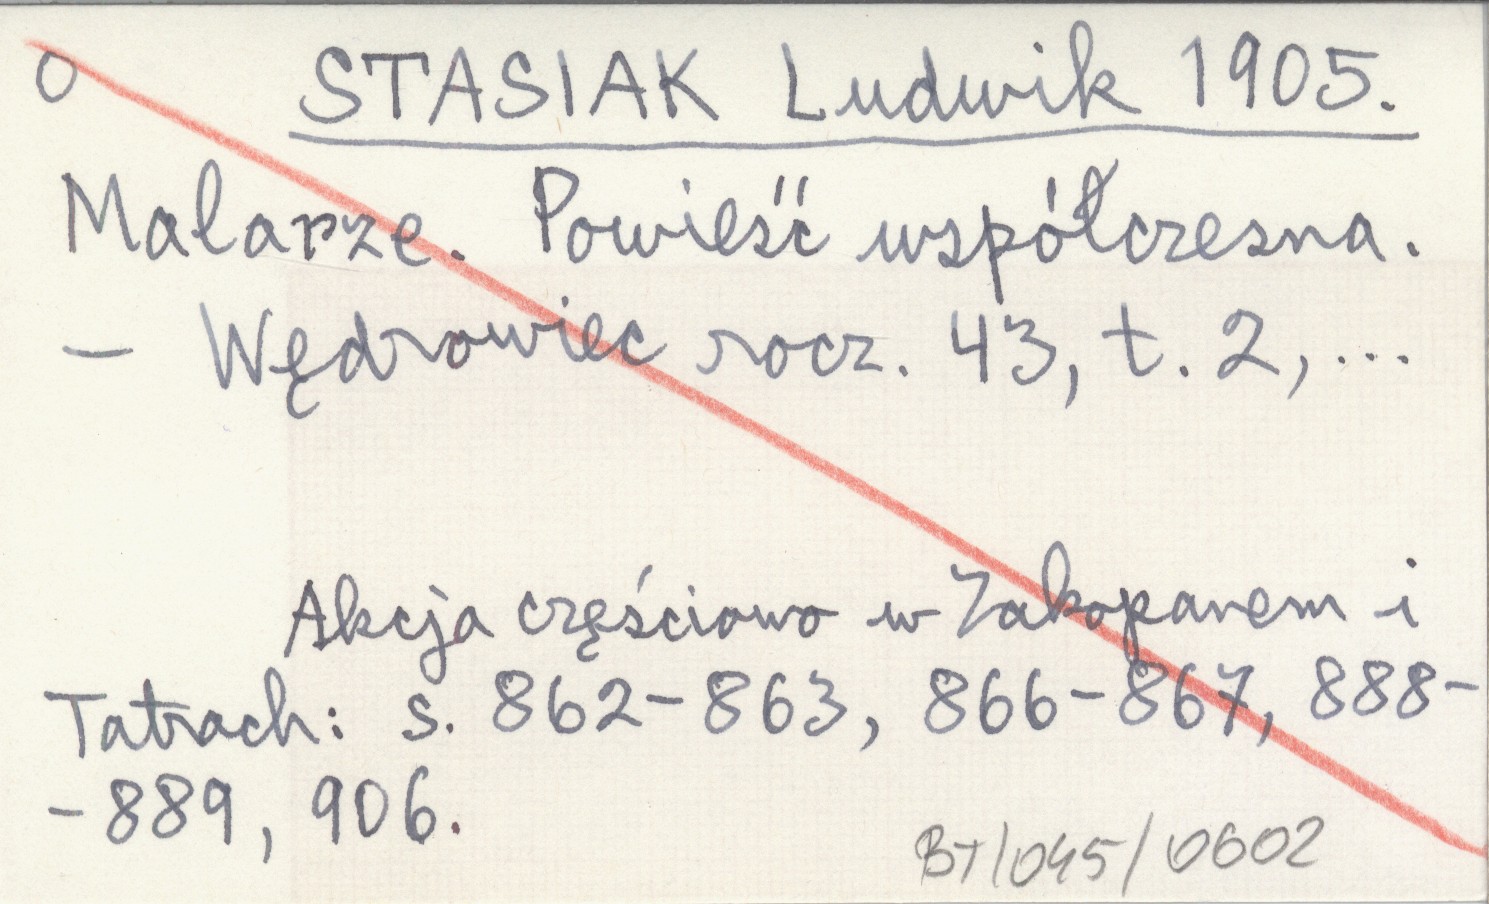 O STASIAK Ludwik 1905.
Malarze. Powieść współczesna.
- Wędrowiec rocz. 43, t. 2, ...
Akcja częściowo w Zakopanem i
Tatrach: s. 862-863, 866-867, 888-
-889, 906.
BT/045/0602